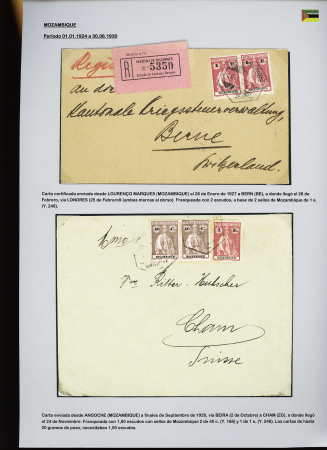 MOZAMBIQUE
Periodo 01.01.1924 a 30.06.1930
R
5350
an die
Kantonale Kriegssteuerverwaltung,
Berne
Switzerland.
Carta certificada enviada desde LOURENÇO MARQUES (MOZAMBIQUE) el 26 de Enero de 1927 a BERN (BE), a donde llegó el 26 de
Febrero, vía LONDRES (25 de Febrero) (ambas marcas al dorso). Franqueada con 2 escudos, a base de 2 sellos de Mozambique de 1 e.
(Y. 248).
40 C. 40 C. 1 E.
Ritter-Hutscher
Cham
Suisse
Carta enviada desde ANGOCHE (MOZAMBIQUE) a finales de Septiembre de 1926, vía BEIRA (2 de Octubre) a CHAM (ZG), a donde llegó
el 24 de Noviembre. Franqueada con 1,80 escudos con sellos de Mozambique 2 de 40 c. (Y. 168) y 1 de 1 e. (Y. 248). Las cartas de hasta
20 gramos de peso, necesitaban 1,60 escudos.